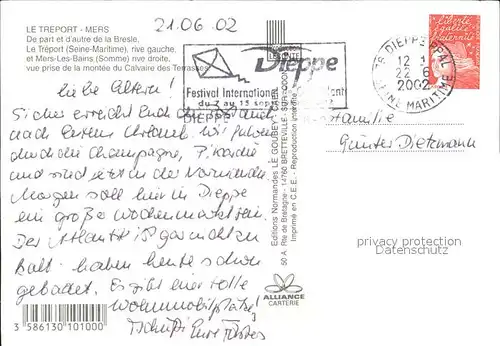 LE TREPORT - MERS
De part et d'autre de la Bresle,
Le Tréport (Seine-Maritime), rive gauche,
et Mers-Les-Bains (Somme) rive droite,
vue prise de la montée du Calvaire des Terrasses
21.06.02
Dieppe
Festival International
du 7 au 15 sept
DIEPPE
76 DIEPPE PPAL
12 H
22 6
2002
SEINE MARITIME
liberté
égalité
fraternité
Liebe Eltern!
Sicher erreicht Euch der
nach Eurem Urlaub. Wir fuhren
durch die Champagne, Picardie
und sind jetzt in der Normandie
Morgen soll hier in Dieppe
ein großer Wochenmarkt sein.
Der Atlantik ist gar nicht so
kalt - haben heute schon
gebadet. Es gibt hier tolle
Wohnmobilplätze!
Tschüß Eure
Familie
Günter Dietzmann
Editions Normandes LE GOUBEY
50 A, Rte de Bretagne - 14760 BRETTEVILLE-SUR-ODON
Imprimé en C.E.E. - Reproduction interdite
privacy protection
Datenschutz
ALLIANCE
CARTERIE
3 586130 101000